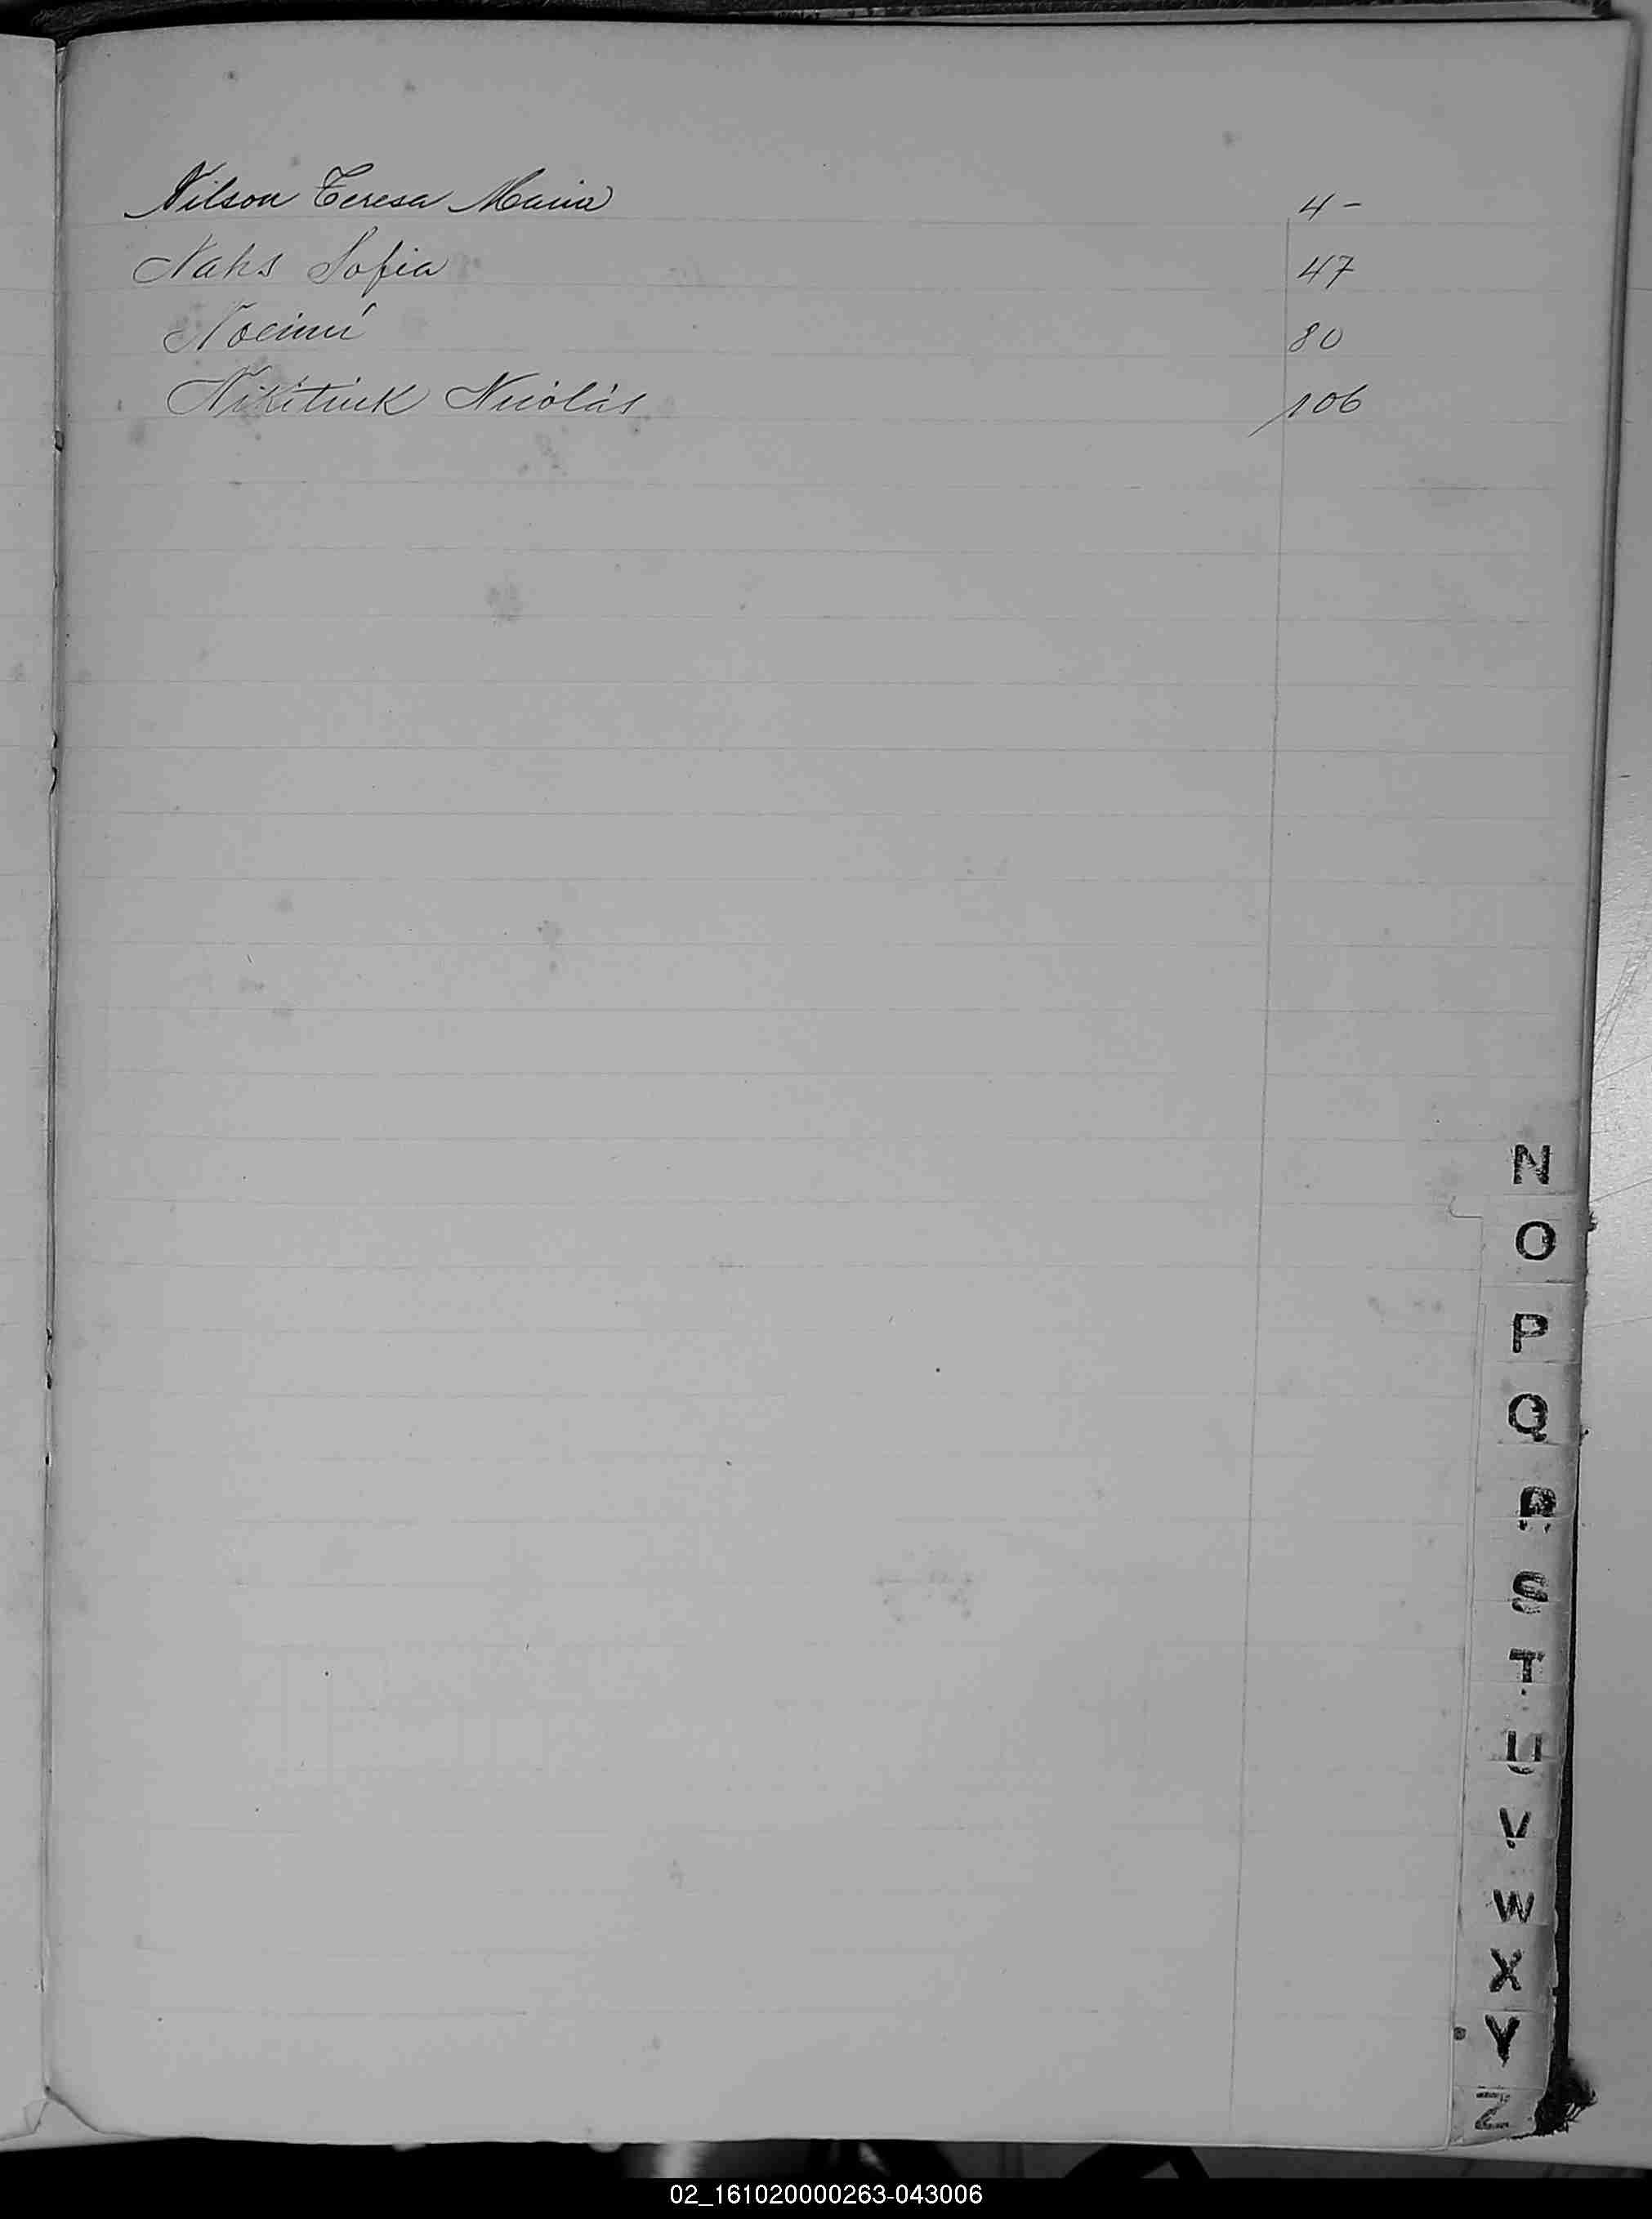 Nilson Teresa Maria 4-
Nahs Sofia 47
Noeimí 80
Nikitiuk Nicolás 106
N
O
P
Q
R
S
T
U
V
W
X
Y
Z
02_161020000263-043006